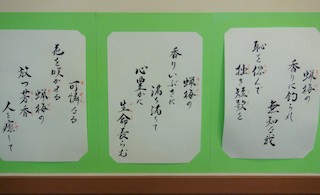 蝋梅の
香りに釣られ
無知な我
恥を偲んで
拙き短歌を
蝋梅の
香りいぶきに
満ち満ちて
心豊かに
生命長らむ
可憐なる
蝋梅の
花を咲かせる
放つ芳香
人を癒して